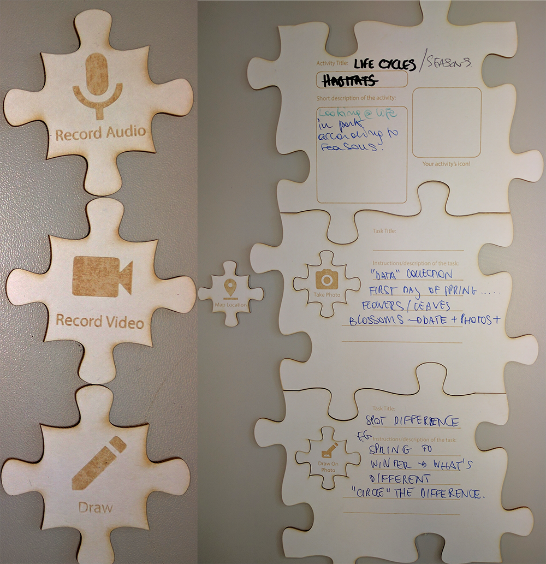 Record Audio
Record Video
Draw
Activity Title: LIFE CYCLES / SEASONS
HABITATS
Short description of the activity:
Looking @ life
in park
according to
seasons.
Your activity's icon!
Task Title:
Instructions/description of the task:
Take Photo
"DATA" COLLECTION
FIRST DAY OF SPRING ....
FLOWERS/LEAVES
BLOSSOMS → DATE + PHOTOS +
Task Title:
SPOT DIFFERENCE
EG. Instructions/description of the task:
Draw On
Photo
SPRING TO
WINTER → WHAT'S
DIFFERENT
"CIRCLE" THE DIFFERENCE.